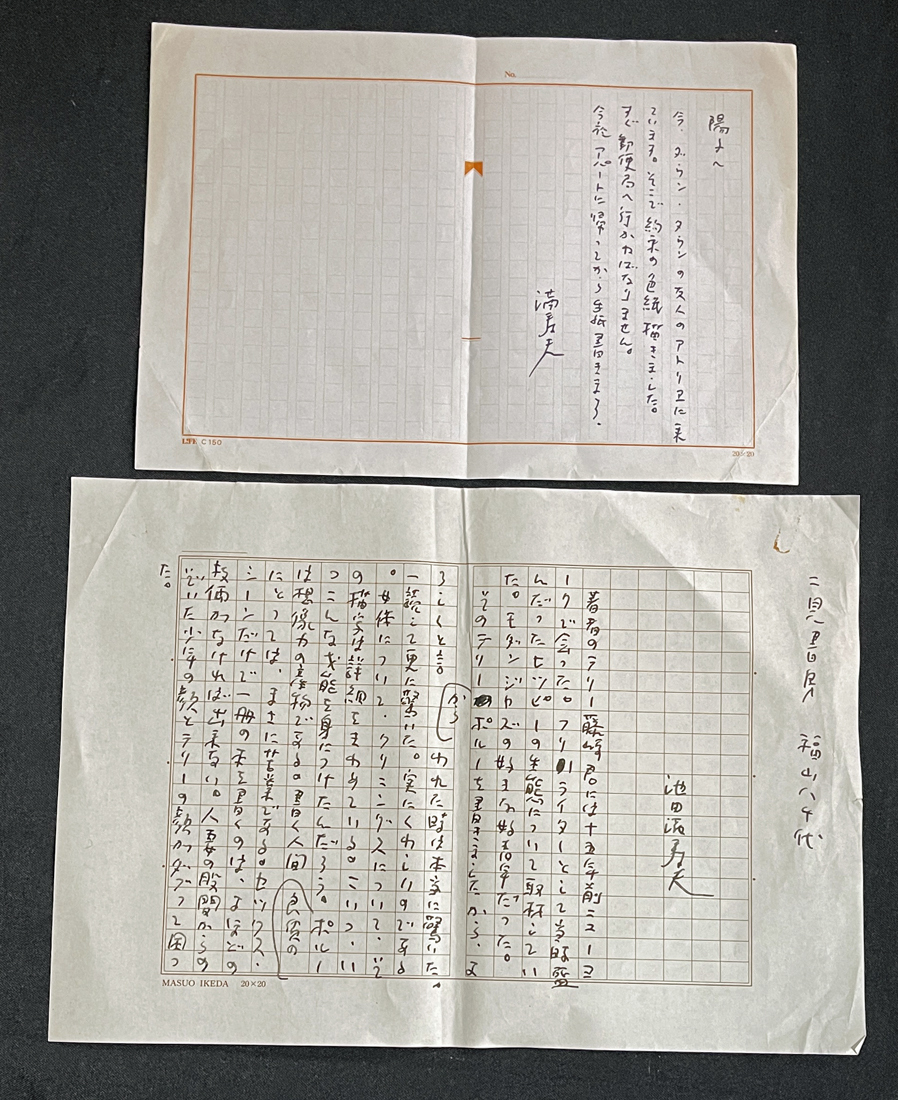 No.
陽子へ
今、ダウン・タウンの友人のアトリエに来
ています。そこで約束の色紙描きました。
すぐ郵便局へ行かねばなりません。
今夜アパートに帰ってから手紙書きます。
満寿夫
LIFE C150
20×20
二見書房 福山八千代
池田満寿夫
著者のテリー藤崎君には十五年前ニューヨ
ークで会った。フリーライターとして当時盛
んだったヒッピーの生態について取材してい
た。モダンジャズの好きな好青年だった。
そのテリーがポルノを書きましたから、よ
ろしくと言
から
われた時は本当に驚いた。
一読して更に驚いた。実にくわしいのである
。女体について、クリニングスについて、そ
の描写は詳細をきわめている。いつ、い
つこんな才能を身につけたんだろう。ポルノ
は想像力の産物である。書く人間
良質の
にとっては、まさに言葉である。セックス・
シーンだけで一冊の本を書くのは、よほどの
技価がなければ出来ない。人妻の股間からの
ぞいた少年の顔とテリーの顔がダブって困っ
た。
MASUO IKEDA 20×20